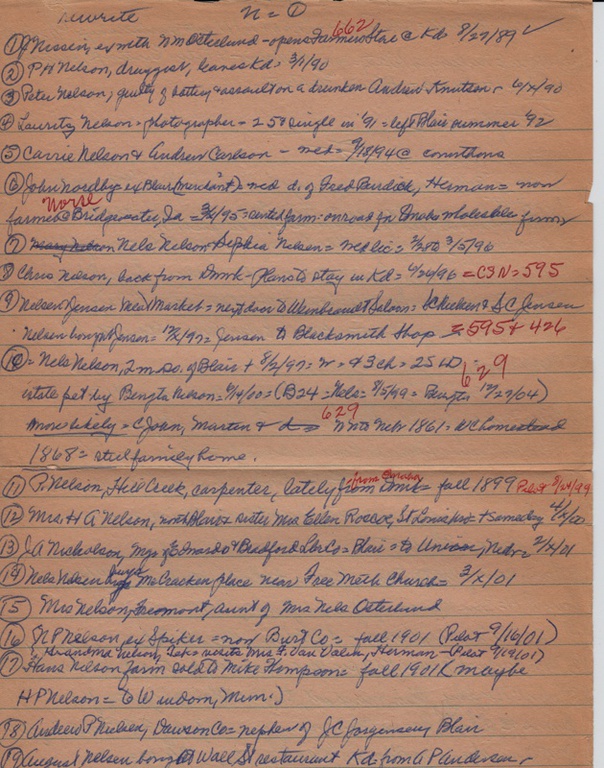 rewrite N = ①
① J Nissen, ex with N M Osterlund - opens Farmers Store @ Kd 8/27/89 ✓
662
② P H Nelson, druggist, leaves Kd = 3/1/90
③ Peter Nelson, guilty of battery & assault on a drunken Andrew Knutsen
④ Lauritz Nelson = photographer - 25 & single in '91 = left Blair summer '92
⑤ Carrie Nelson & Andrew Carlson - wed = 9/18/94 @
⑥ John Nordby = ex Blair (merchant) = wed d. of Fred Purdick, Herman = now
farmer @ Bridgewater, Ia = 3/4/95 = rented farm: on road for Omaha wholesale firm
Norse
⑦ Nels Nelson Sophia Nelsen = wed lic = 3/5/96
8 Chris Nelson, back from Dmrk - Plans to stay in Kd = 4/24/96 = C3N = 595
⑨ Nelsen & Jensen Meat Market = next door to Saloon = & S C Jensen
Nelsen bought Jensen = Jensen to Blacksmith Shop = 595 + 426
⑩ = Nels Nelson, 2 m. so. of Blair + 8/2/97 = w = & 3 ch =
629
estate pet by Bengta Nelson = 9/14/00 = (B24 = Nels = 8/5/99 = Bengta 11/27/04)
more likely = C John, Marten & into Nebr 1861 = WC homestead
629
1868 = still family home.
⑪ P. Nelson, Hill Creek, carpenter, lately from Dmrk = fall 1899 Pilot 8/24/99
from Omaha
⑫ Mrs H A Nelson, north Blair & sister Mrs Ellen Roscoe, St Louis + same day
⑬ J A Nicholson, Mgr of Edwards & Bradford Lbr Co = Blair = to Union, Nebr = 2/x/01
⑭ Nels Nelsen buys McCracken place near Free Meth Church = 3/x/01
⑮ Mrs Nelson, Fremont, aunt of Mrs Nels Osterlund
⑯ N P Nelson, ex Spiker = now Burt Co = fall 1901 (Pilot 9/16/01)
Grandma Nelson, visits Mrs F. Van Valin, Herman - (Pilot 9/19/01)
⑰ Hans Nelson farm sold to Mike Thompson = fall 1901 (maybe
H P Nelson = to Windom, Minn.)
⑱ Andrew P Nielsen, Dawson Co = nephew of J C Jorgensen, Blair
⑲ August Nelson bought Wall St restaurant Kd from A P Andersen